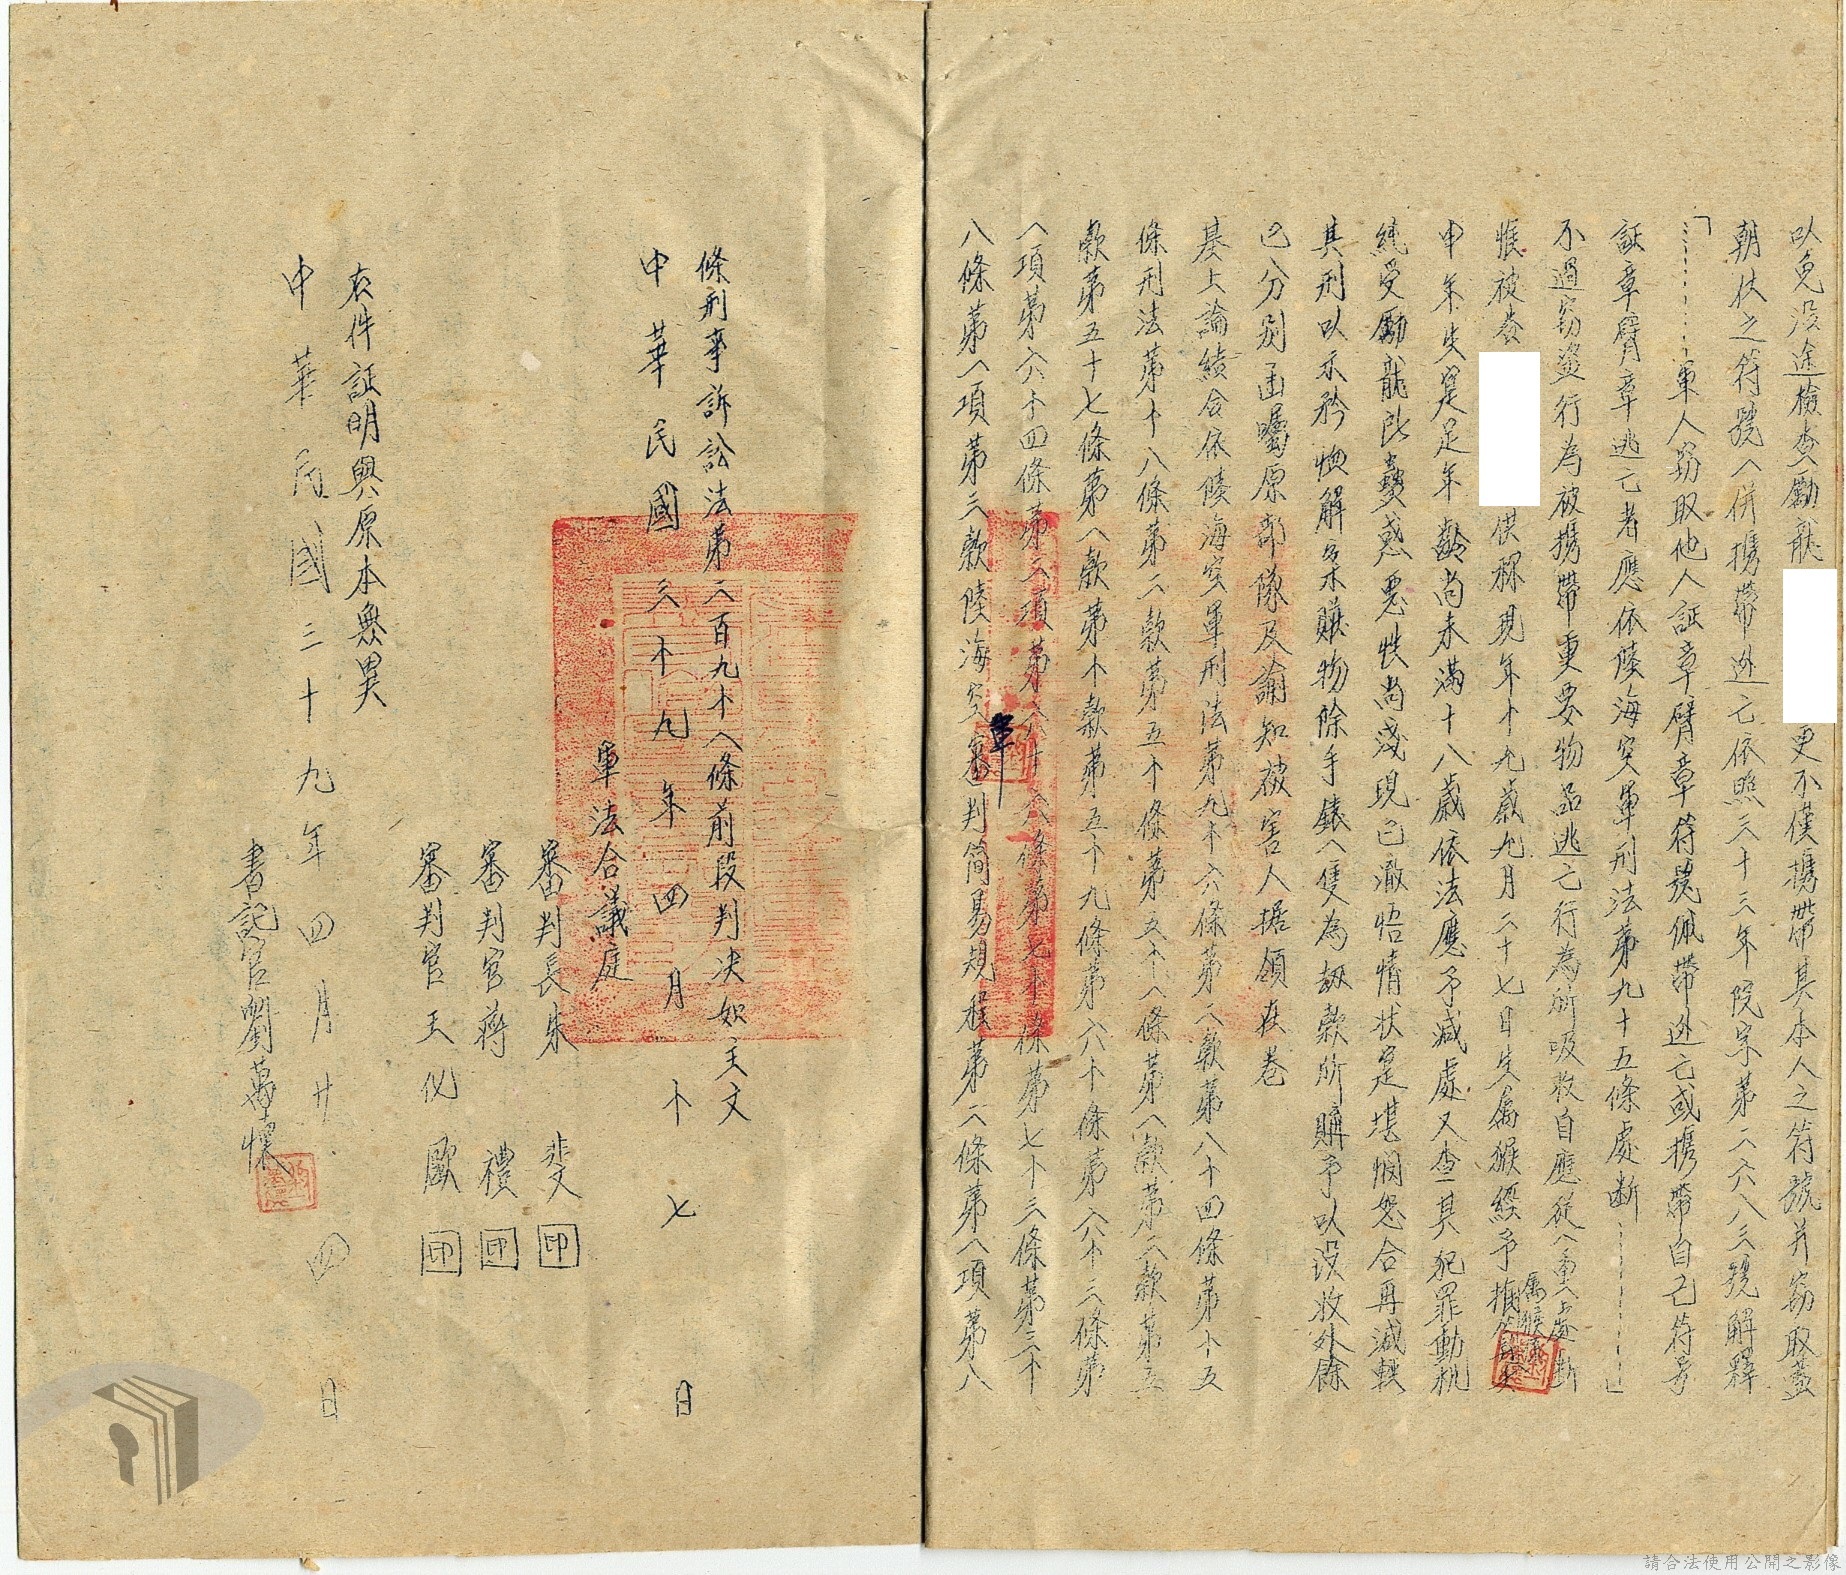 以免沒途檢查勵龍 更不僅攜帶其本人之符號并竊取蓋
朝仗之符號一併攜帶逃亡依照三十三年院字第二六八三號解釋
「………軍人竊取他人証章臂章符號佩帶逃亡或攜帶自己符号
証章臂章逃亡者應依陸海空軍刑法第九十五條處断………」
不過竊盜行為被攜帶重要物品逃亡行為所吸收自應從一重處断
惟被告 供稱現年十九歲九月二十七日生屬猴經予推算
屬猴為
申年生是足年齡尚未滿十八歲依法應予減處又查其犯罪動机
純受勵龍所蠱惑惡性尚淺現已澈悟情状定堪憫恕合再減輕
其刑以示矜恤解案賍物除手錶一隻為款所購予以没收外餘
已分别函囑原部隊及諭知被害人据領在卷
基上論結合依陸海空軍刑法第九十六條第二款第八十四條第十五
條刑法第十八條第二款第五十條第五十一條第一款第二款第五
款第五十七條第一款第十款第五十九條第六十條第六十三條第
一項第六十四條第二項第六十六條第七十條第七十三條第三十
八條第一項第三款陸海空軍審判簡易規程第二條第一項第八
條刑事訴訟法第二百九十一條前段判决如主文
中華民國三十九年四月十七日
軍法合議庭
審判長朱斐 印
審判官蔣禮 印
審判官王化歐 印
右件証明與原本無異
中華民國三十九年四月廿四日
書記官劉萬懷
請合法使用公開之影像